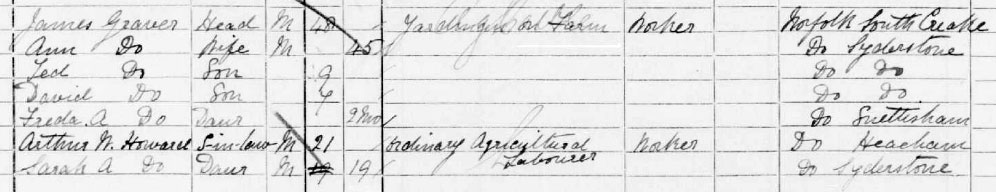 James Graver Head M 48 Yardman on Farm Worker Norfolk South Creake
Ann Do Wife M 45 Do Syderstone
Ted Do Son 9 Do Do
David Do Son Do Do
Freda. A Do Daur 9 Mo Do Snettisham
Arthur W. Howard S-in-law M 21 Ordinary Agricultural Labourer Worker Do Heacham
Sarah A Do Daur M 19 19 Do Syderstone